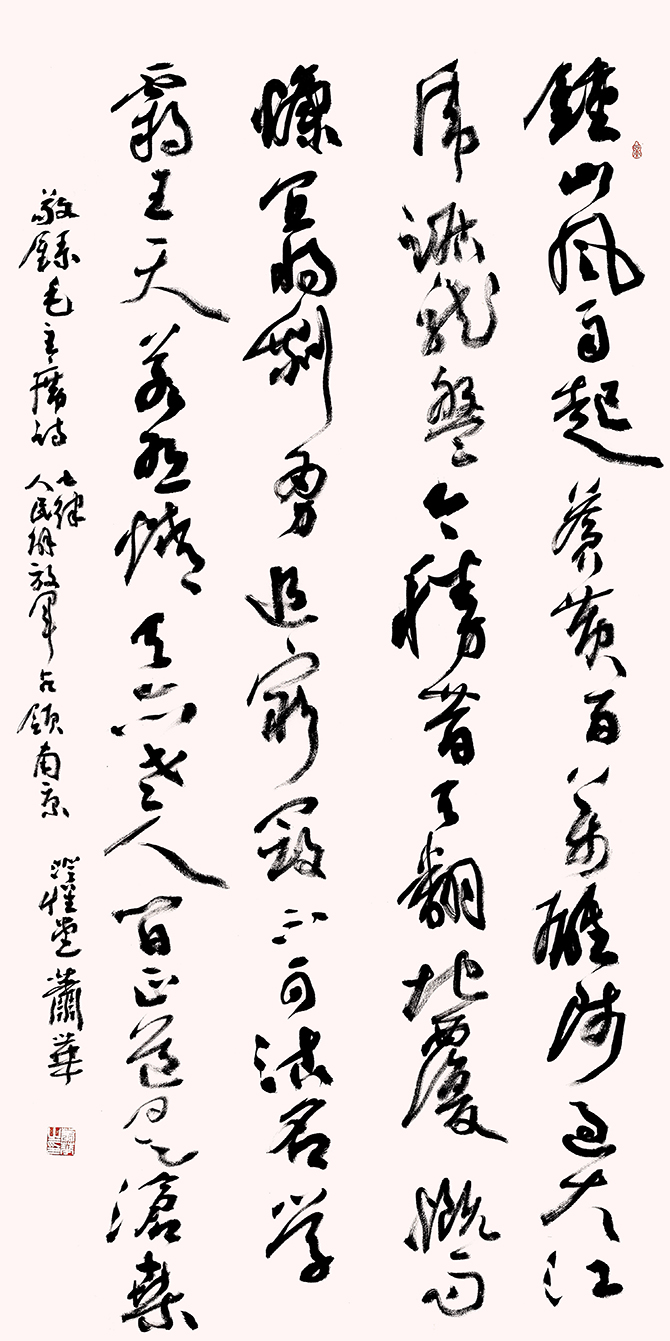 鍾山风雨起蒼黄百万雄师过大江
虎踞龙盤今勝昔天翻地覆慨而
慷宜将剩勇追窮寇不可沽名学
霸王天若有情天亦老人间正道是滄桑
敬録毛主席诗七律人民解放军占领南京 蕭華